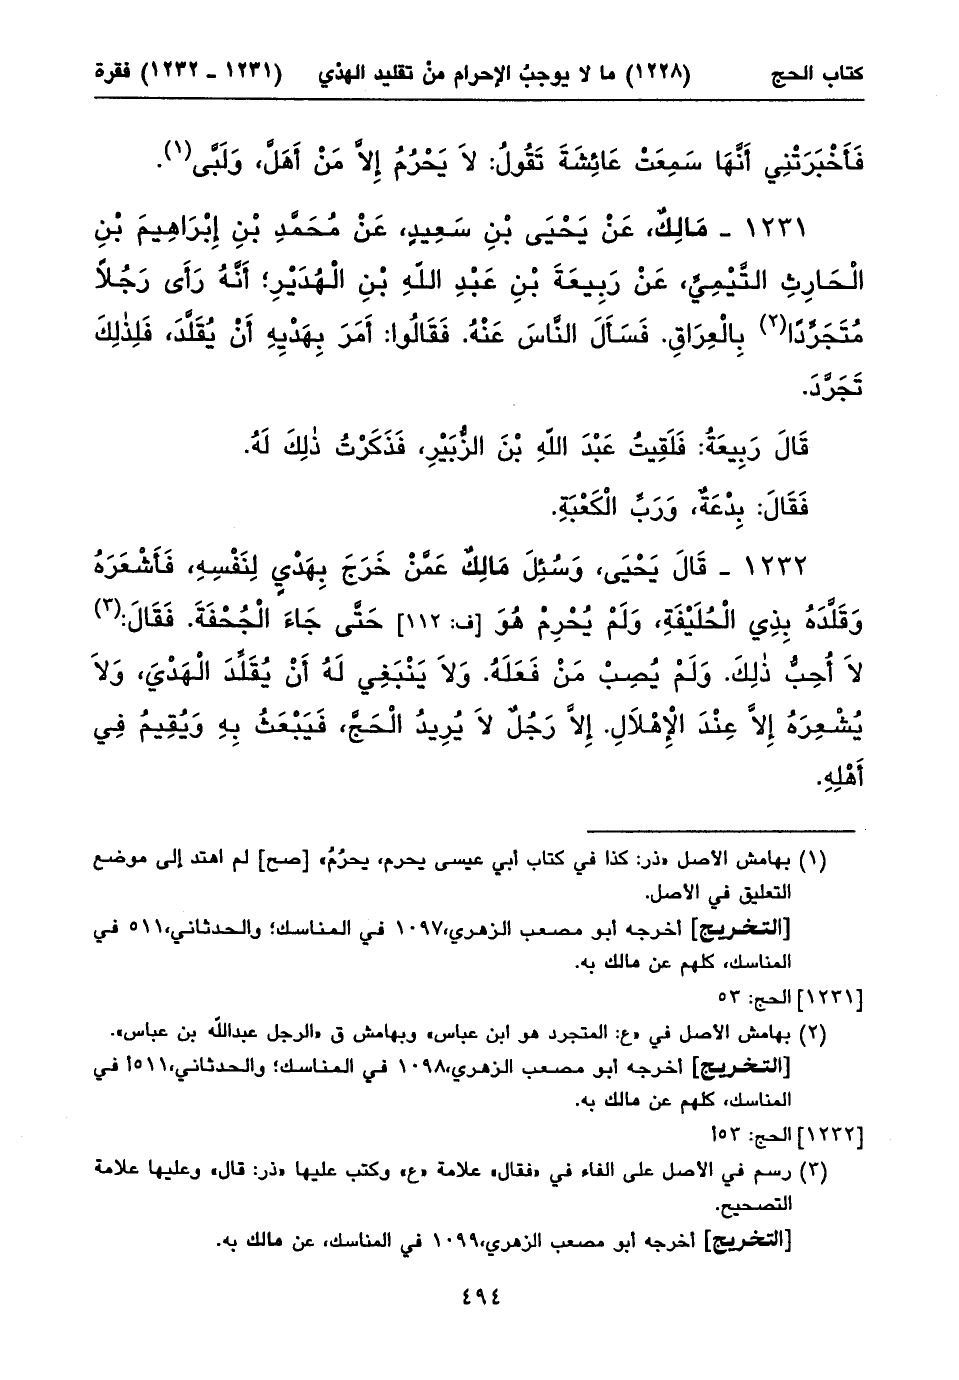 كتاب الحج (١٢٢٨) ما لا يوجبُ الإحرام منْ تقليد الهدْي (١٢٣١ - ١٢٣٢) فقرة
فَأَخْبَرَتْنِي أَنَّهَا سَمِعَتْ عَائِشَةَ تَقُولُ: لاَ يَحْرُمُ إِلاَّ مَنْ أَهَلَّ، وَلَبَّى(١).
١٢٣١ - مَالِكٌ، عَنْ يَحْيَى بْنِ سَعِيدٍ، عَنْ مُحَمَّدِ بْنِ إِبْرَاهِيمَ بْنِ
الْحَارِثِ التَّيْمِيِّ، عَنْ رَبِيعَةَ بْنِ عَبْدِ اللهِ بْنِ الْهُدَيْرِ؛ أَنَّهُ رَأَى رَجُلاً
مُتَجَرِّدًا(٢) بِالْعِرَاقِ. فَسَأَلَ النَّاسَ عَنْهُ. فَقَالُوا: أَمَرَ بِهَدْيِهِ أَنْ يُقَلَّدَ، فَلِذٰلِكَ
تَجَرَّدَ.
قَالَ رَبِيعَةُ: فَلَقِيتُ عَبْدَ اللهِ بْنَ الزُّبَيْرِ، فَذَكَرْتُ ذٰلِكَ لَهُ.
فَقَالَ: بِدْعَةٌ، وَرَبِّ الْكَعْبَةِ.
١٢٣٢ - قَالَ يَحْيَى، وَسُئِلَ مَالِكٌ عَمَّنْ خَرَجَ بِهَدْيٍ لِنَفْسِهِ، فَأَشْعَرَهُ
وَقَلَّدَهُ بِذِي الْحُلَيْفَةِ، وَلَمْ يُحْرِمْ هُوَ [ف: ١١٢] حَتَّى جَاءَ الْجُحْفَةَ. فَقَالَ:(٣)
لاَ أُحِبُّ ذٰلِكَ. وَلَمْ يُصِبْ مَنْ فَعَلَهُ. وَلاَ يَنْبَغِي لَهُ أَنْ يُقَلِّدَ الْهَدْيَ، وَلاَ
يُشْعِرَهُ إِلاَّ عِنْدَ الْإِهْلاَلِ. إِلاَّ رَجُلٌ لاَ يُرِيدُ الْحَجَّ، فَيَبْعَثُ بِهِ وَيُقِيمُ فِي
أَهْلِهِ.
(١) بهامش الأصل «ذر: كذا في كتاب أبي عيسى يحرم، يحرُمُ» [صح] لم اهتد إلى موضع
التعليق في الأصل.
[التخريج] أخرجه أبو مصعب الزهري،١٠٩٧ في المناسك؛ والحدثاني،٥١١ في
المناسك، كلهم عن مالك به.
[١٢٣١] الحج: ٥٣
(٢) بهامش الأصل في «ع: المتجرد هو ابن عباس» وبهامش ق «الرجل عبدالله بن عباس».
[التخريج] أخرجه أبو مصعب الزهري،١٠٩٨ في المناسك؛ والحدثاني،٥١١أ في
المناسك، كلهم عن مالك به.
[١٢٣٢] الحج: ٥٣أ
(٣) رسم في الأصل على الفاء في «فقال» علامة «ع» وكتب عليها «ذر: قال» وعليها علامة
التصحيح.
[التخريج] أخرجه أبو مصعب الزهري،١٠٩٩ في المناسك، عن مالك به.
٤٩٤